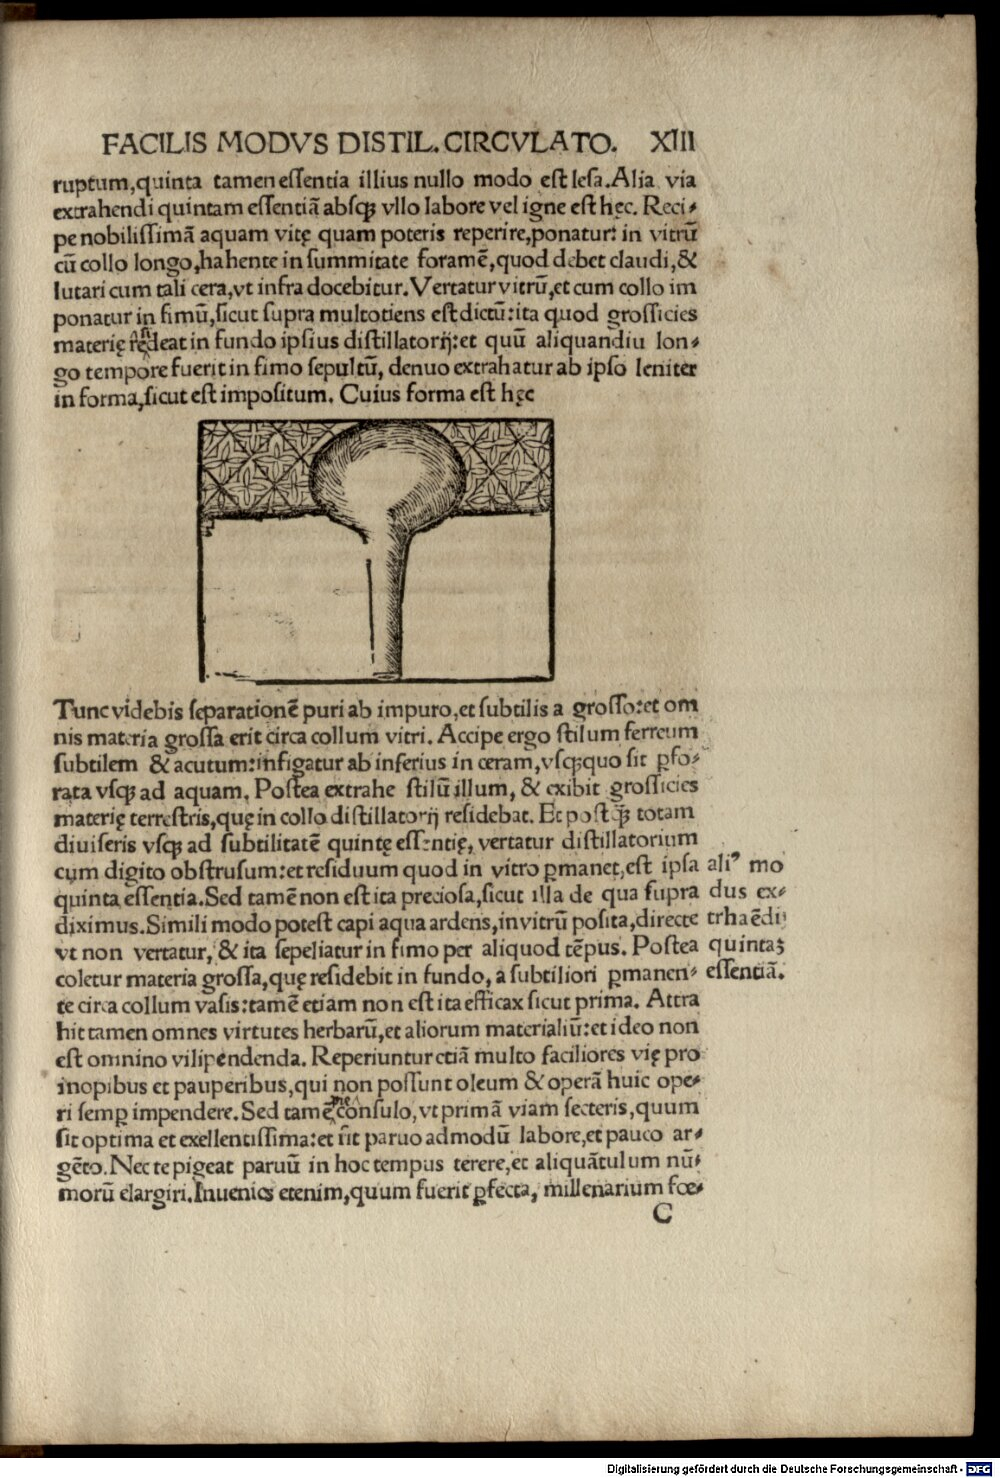 FACILIS MODVS DISTIL. CIRCVLATO. XIII
ruptum, quinta tamen essentia illius nullo modo est lesa. Alia via
extrahendi quintam essentiā absqꝫ vllo labore vel igne est hęc. Reci⸗
pe nobilissimā aquam vitę quam poteris reperire, ponatur: in vitrū
cū collo longo, habente in summitate foramē, quod debet claudi, &
lutari cum tali cera, vt infra docebitur. Vertatur vitrū, et cum collo im
ponatur in fimū, sicut supra multotiens est dictū: ita quod grossicies
materię redeat in fundo ipsius distillatorij: et quū aliquandiu lon⸗
go tempore fuerit in fimo sepultū, denuo extrahatur ab ipso leniter
in forma, sicut est impositum. Cuius forma est hęc
Tunc videbis separationē puri ab impuro, et subtilis a grosso: et om
nis materia grossa erit circa collum vitri. Accipe ergo stilum ferreum
subtilem & acutum: infigatur ab inferius in ceram, vsqꝫquo sit ꝑfo⸗
rata vsqꝫ ad aquam. Postea extrahe stilū illum, & exibit grossicies
materię terrestris, quę in collo distillatorij residebat. Et postꝗ̄ totam
diuiseris vsqꝫ ad subtilitatē quintę essentię, vertatur distillatorium
cum digito obstrusum: et residuum quod in vitro ꝑmanet, est ipsa
quinta essentia. Sed tamē non est ita preciosa, sicut illa de qua supra
diximus. Simili modo potest capi aqua ardens, in vitrū posita, directe
vt non vertatur, & ita sepeliatur in fimo per aliquod tēpus. Postea
coletur materia grossa, quę residebit in fundo, a subtiliori ꝑmanen⸗
te circa collum vasis: tamē etiam non est ita efficax sicut prima. Attra
hit tamen omnes virtutes herbarū, et aliorum materialiū: et ideo non
est omnino vilipendenda. Reperiuntur etiā multo faciliores vię pro
inopibus et pauperibus, qui non possunt oleum & operā huic ope⸗
ri semꝑ impendere. Sed tamē consulo, vt primā viam secteris, quum
sit optima et exellentissima: et fit paruo admodū labore, et pauco ar⸗
gēto. Nec te pigeat paruū in hoc tempus terere, et aliquātulum nū⸗
morū elargiri. Inuenies etenim, quum fuerit ꝑfecta, millenarium fœ⸗
C
aliꝰ mo
dus ex⸗
trhaēdi
quintaꝫ
essentiā.
Digitalisierung gefördert durch die Deutsche Forschungsgemeinschaft - DFG